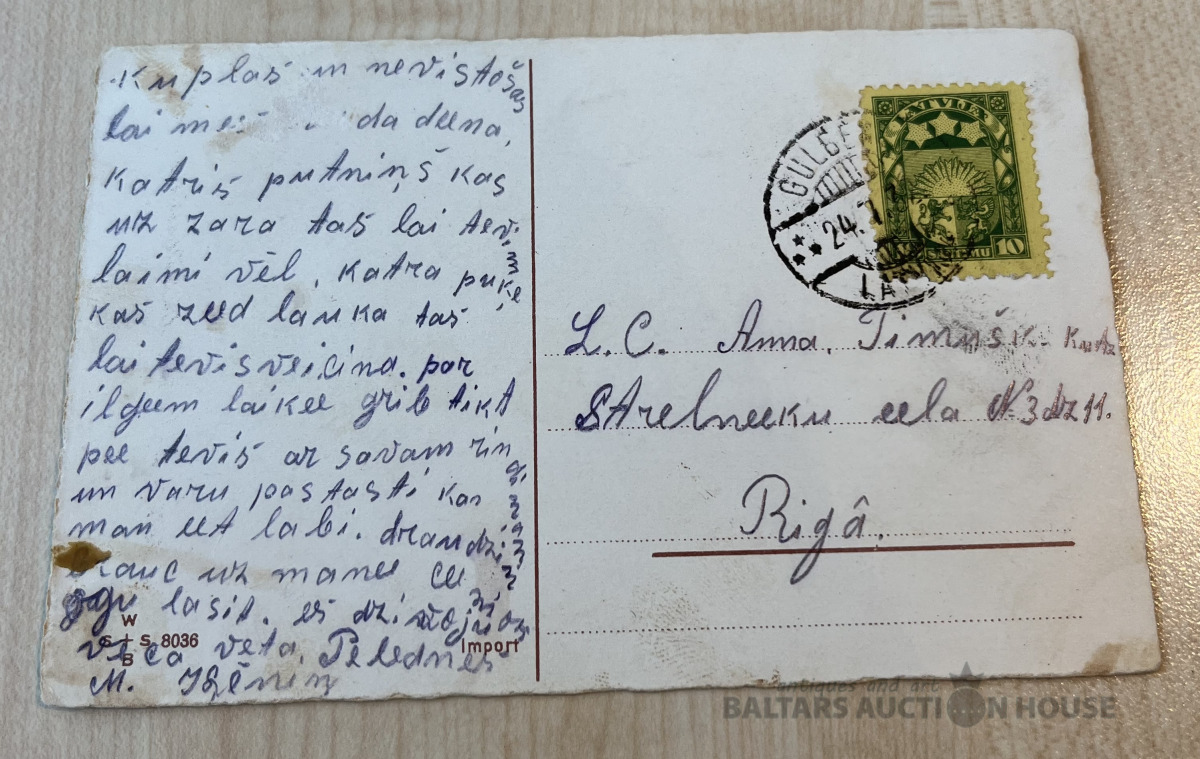 Kuplas un nevistošas
lai mes da deena,
Katris putniņš kas
uz zara tas lai tevim
laimi vēl, katra puķe
kas zeed lauka tas
lai tevis sveicina. par
ilgeem laikee grib tikt
pee tevis ar savam rin
un varu pastasti ka
man eet labi. draudzin
brauc uz manee
ogu lasit. es dzivoju
veca veta, Pelednes
M.
W
S+S. 8036
B
Import
LATVIJA
10
GULBE
24.
L.C. Anna. Timušk
Strelneeku eela N. 3 dz 11.
Rigâ.
antiques and art
BALTARS AUCTION HOUSE